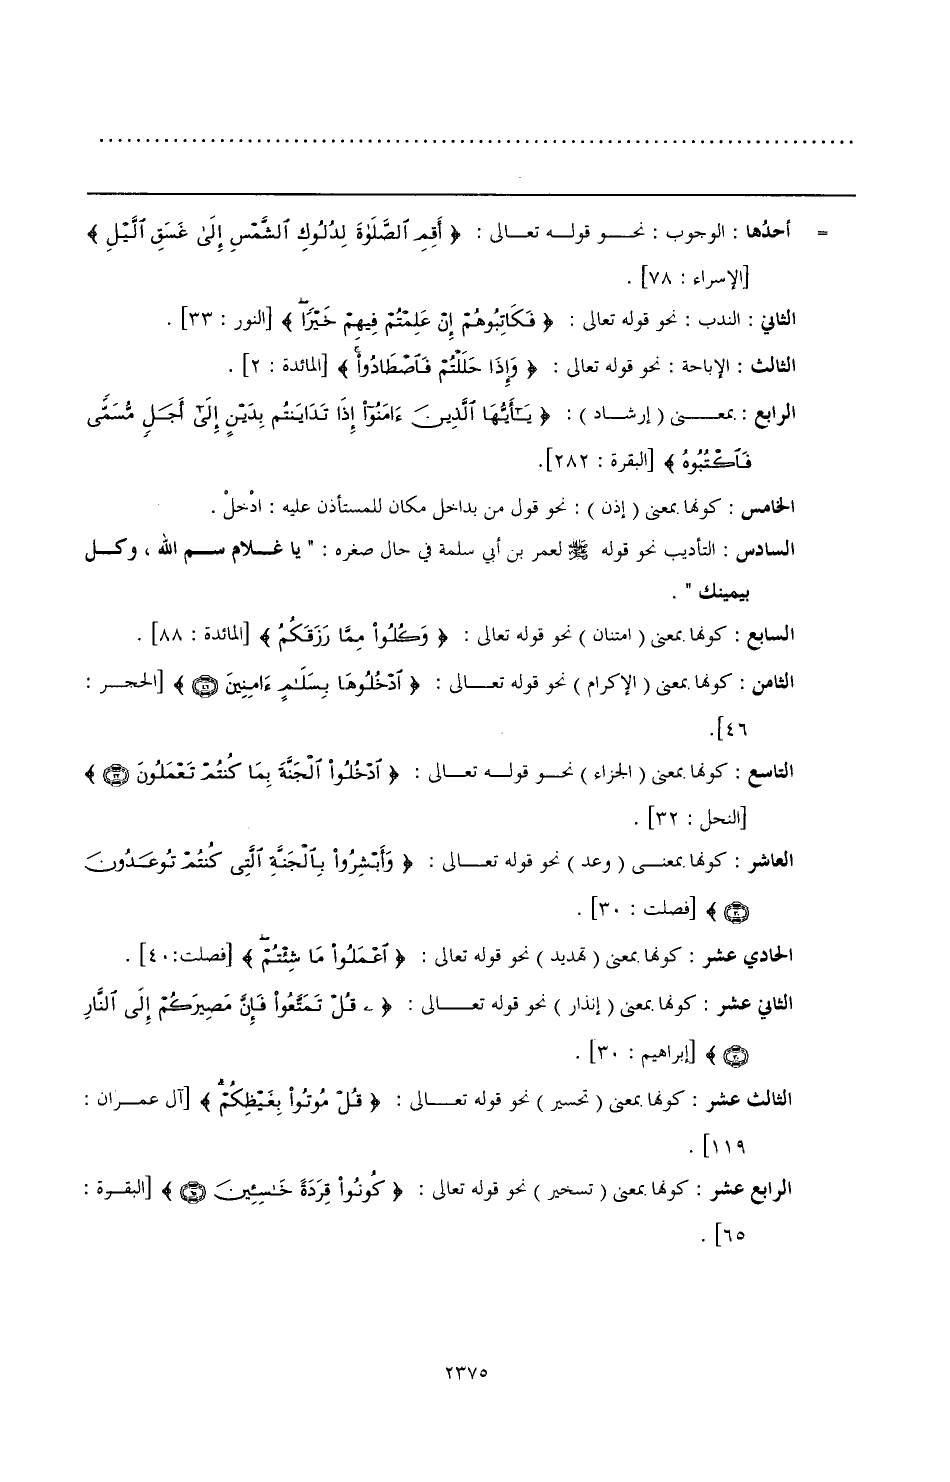 = أحدُها : الوجوب : نحـــو قولـــه تعـــالى : ﴿ أَقِمِ ٱلصَّلَوٰةَ لِدُلُوكِ ٱلشَّمْسِ إِلَىٰ غَسَقِ ٱلَّيْلِ ﴾
[الإسراء : ٧٨] .
الثاني : الندب : نحو قوله تعالى : ﴿ فَكَاتِبُوهُمْ إِنْ عَلِمْتُمْ فِيهِمْ خَيْرًا ۖ ﴾ [النور : ٣٣] .
الثالث : الإباحة : نحو قوله تعالى : ﴿ وَإِذَا حَلَلْتُمْ فَٱصْطَادُوا۟ ۚ ﴾ [المائدة : ٢] .
الرابع : بمعـــنى ( إرشـاد ) : ﴿ يَـٰٓأَيُّهَا ٱلَّذِينَ ءَامَنُوٓا۟ إِذَا تَدَايَنتُم بِدَيْنٍ إِلَىٰٓ أَجَلٍ مُّسَمًّى
فَٱكْتُبُوهُ ﴾ [البقرة : ٢٨٢].
الخامس : كونها بمعنى ( إذن ) : نحو قول من بداخل مكان للمستأذن عليه : ادْخلْ .
السادس : التأديب نحو قوله ﷺ لعمر بن أبي سلمة في حال صغره : " يا غـــلام ســـم الله ، وكـــل
بيمينك " .
السابع : كونها بمعنى ( امتنان ) نحو قوله تعالى : ﴿ وَكُلُوا۟ مِمَّا رَزَقَكُمُ ﴾ [المائدة : ٨٨] .
الثامن : كونها بمعنى ( الإكرام ) نحو قوله تعـــالى : ﴿ ٱدْخُلُوهَا بِسَلَـٰمٍ ءَامِنِينَ ۝٤٦ ﴾ [الحجـــر :
٤٦].
التاسع : كونها بمعنى ( الجزاء ) نحـــو قولـــه تعـــالى : ﴿ ٱدْخُلُوا۟ ٱلْجَنَّةَ بِمَا كُنتُمْ تَعْمَلُونَ ۝٣٢ ﴾
[النحل : ٣٢] .
العاشر : كونها بمعنـــى ( وعد ) نحو قوله تعـــالى : ﴿ وَأَبْشِرُوا۟ بِٱلْجَنَّةِ ٱلَّتِى كُنتُمْ تُوعَدُونَ
۝٣٠ ﴾ [فصلت : ٣٠] .
الحادي عشر : كونها بمعنى ( تهديد ) نحو قوله تعالى : ﴿ ٱعْمَلُوا۟ مَا شِئْتُمْ ۖ ﴾ [فصلت:٤٠] .
الثاني عشر : كونها بمعنى ( إنذار ) نحو قوله تعـــالى : ﴿ ۦ قُلْ تَمَتَّعُوا۟ فَإِنَّ مَصِيرَكُمْ إِلَى ٱلنَّارِ
۝٣٠ ﴾ [إبراهيم : ٣٠] .
الثالث عشر : كونها بمعنى ( تحسير ) نحو قوله تعـــالى : ﴿ قُلْ مُوتُوا۟ بِغَيْظِكُمْ ۗ ﴾ [آل عمـــران :
١١٩] .
الرابع عشر : كونها بمعنى ( تسخير ) نحو قوله تعالى : ﴿ كُونُوا۟ قِرَدَةً خَـٰسِـِٔينَ ۝٦٥ ﴾ [البقـــرة :
٦٥] .
٢٣٧٥